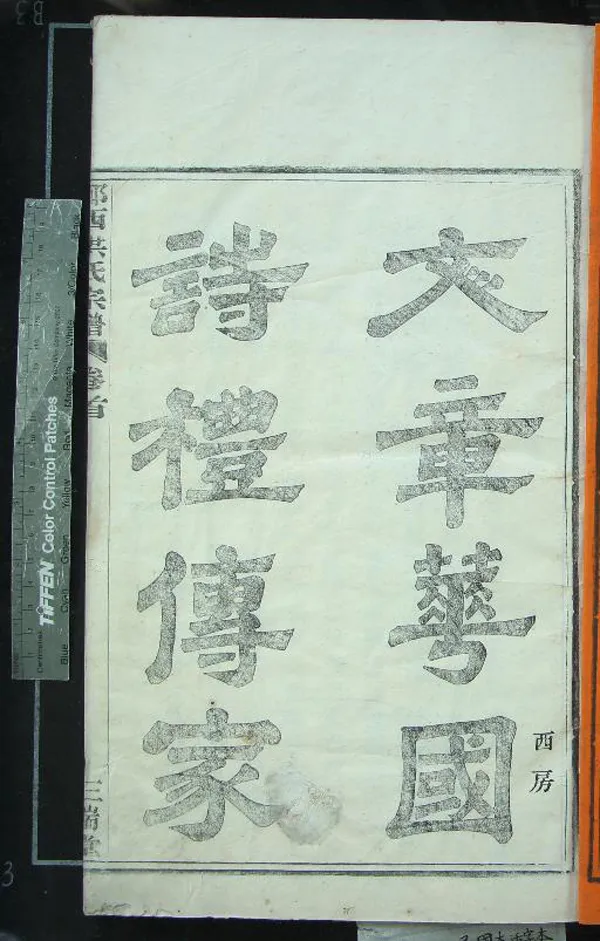 西房
文章華國
詩禮傳家
西洪氏宗譜
卷首
三瑞堂
TIFFEN Color Control Patches
Blue
Cyan
Green
Yellow
Red
Magenta
White
3/Color
Black
Centimetres
3